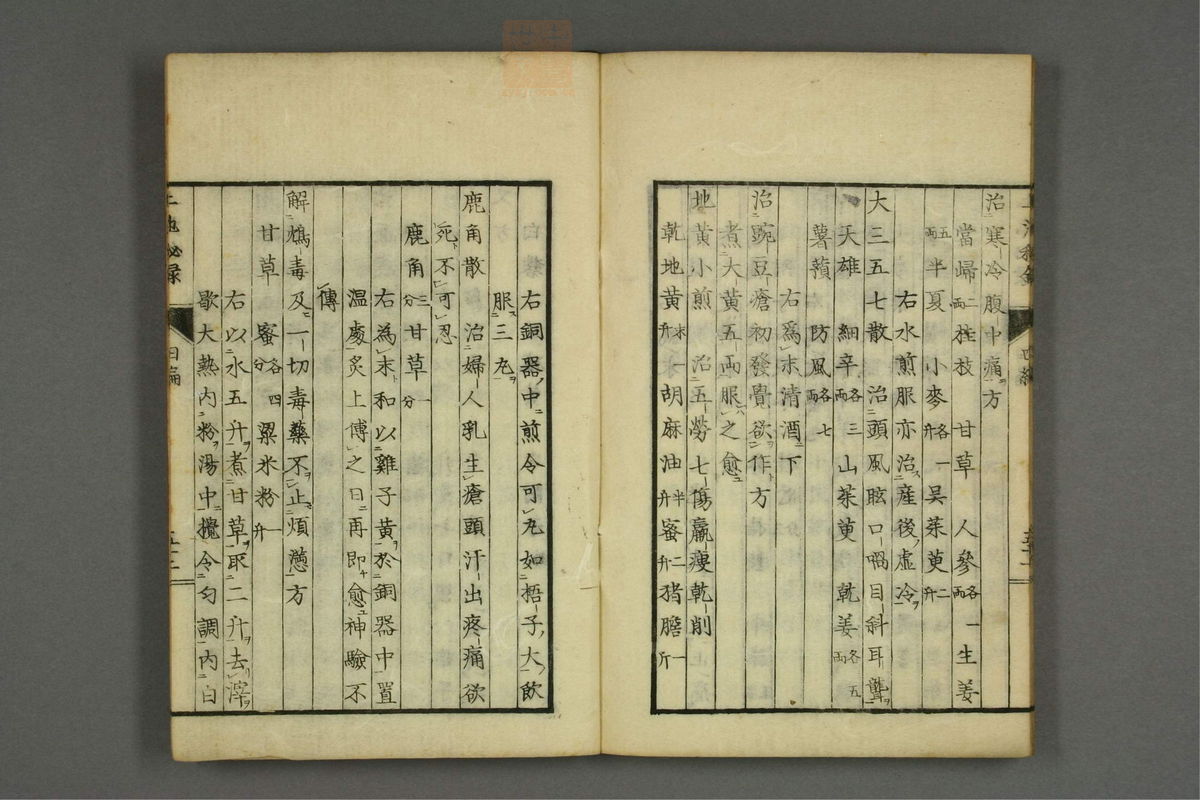 治寒冷腹中痛方
當歸二兩桂枝甘草人參各一兩生姜
五兩半夏小麥各一升吳茱萸二升
右水煎服亦治産後虚冷
大三五七散治頭風眩口喎目斜耳聾
天雄細辛各三兩山茱萸乾姜各五兩
薯蕷防風各七兩
右爲末清酒下
治豌豆瘡初發覺欲作方
煮大黄五兩服之愈
地黄小煎治五勞七傷羸瘦乾削
乾地黄末一升胡麻油半升蜜二升猪膽一斤
右銅器中煎令可丸如梧子大飲
服三丸
鹿角散治婦人乳生瘡頭汁出疼痛欲
死不可忍
鹿角三分甘草一分
右為末和以雞子黄於銅器中置
温處炙上傅之日再即愈神驗不
傳
解鴆毒及一切毒藥不止煩懣方
甘草蜜各四分粱米粉一升
右以水五升煮甘草取二升去滓
歇大熱内粉湯中攪令勻調内白
四編